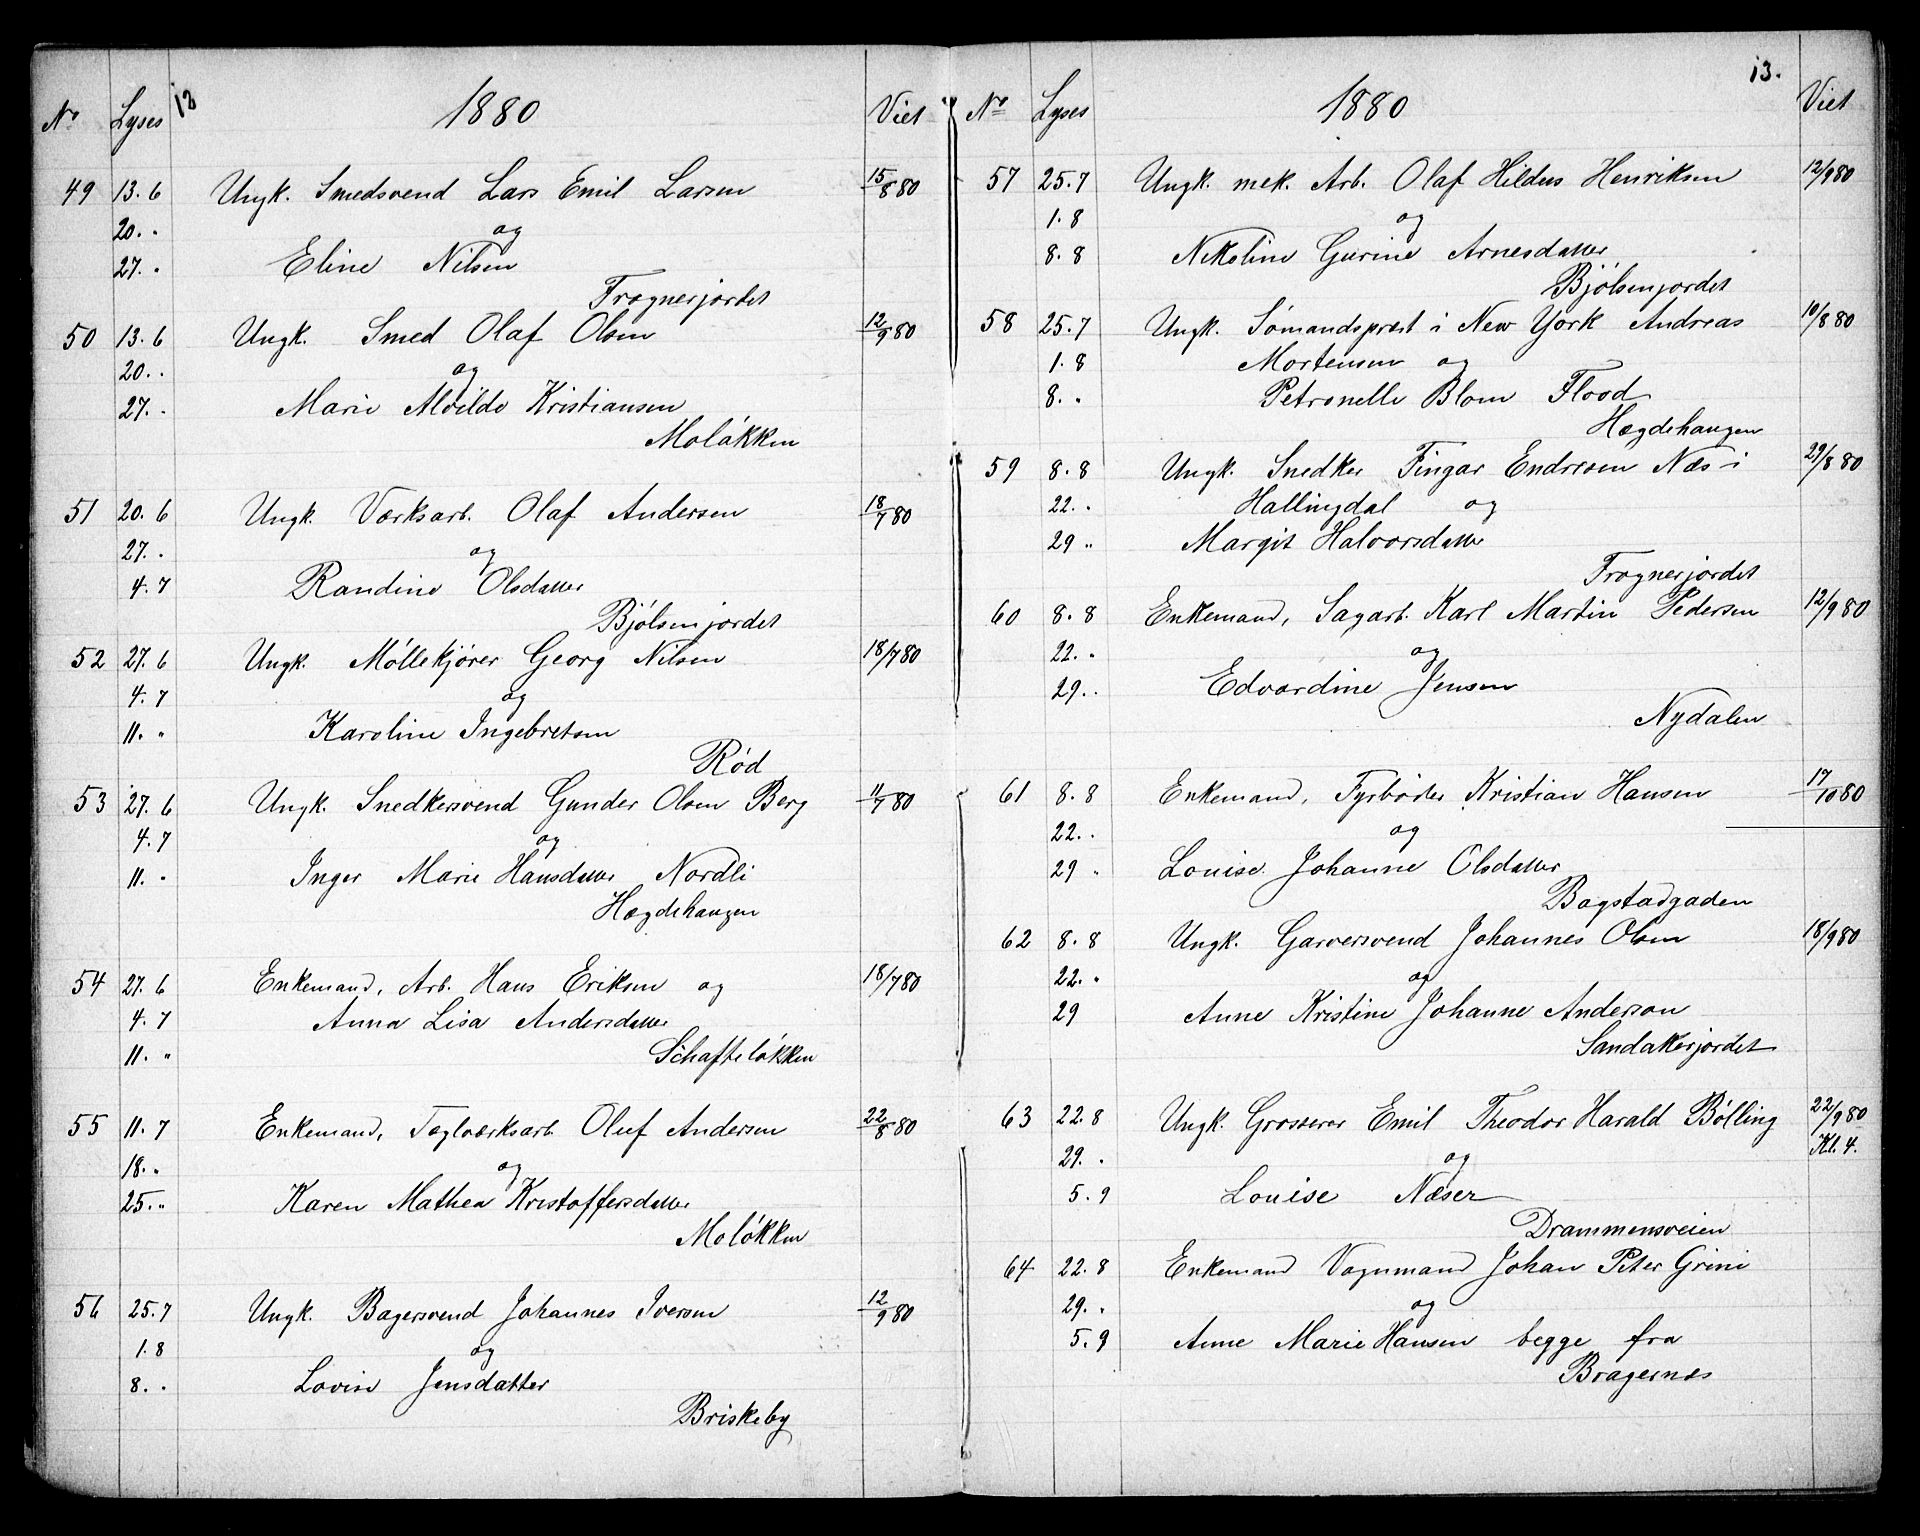 12
No Lyses 1880 Viet
49 13.6 Ungk. Smedsvend Lars Emil Larsen 15/8 80
20. " og
27. " Eline Nilsen
Frognerjordet
50 13.6 Ungk. Smed Olaf Olsen 12/9 80
20. " og
27. " Marie Alvilde Kristiansen
Moløkken
51 20.6 Ungk. Værksarb. Olaf Andersen 18/7 80
27. " og
4.7 Randine Olsdatter
Bjølsenjordet
52 27.6 Ungk. Møllekjører Georg Nilsen 18/7 80
4.7 og
11. " Karoline Ingebretsen
Rød
53 27.6 Ungk. Snedkersvend Gunder Olsen Berg 11/7 80
4.7 og
11. " Inger Marie Hansdatter Nordli
Hægdehaugen
54 27.6 Enkemand, Arb. Hans Eriksen og 18/7 80
4.7 Anna Lisa Andersdatter
11. " Schafteløkken
55 11.7 Enkemand, Teglværksarb. Oluf Andersen 22/8 80
18. " og
25. " Karen Mathea Kristoffersdatter
Moløkken
56 25.7 Ungk. Bagersvend Johannes Iversen 12/9 80
1.8 og
8. " Lovise Jensdatter
Briskeby
13.
No Lyses 1880 Viet
57 25.7 Ungk. mek. Arb. Olaf Hildus Henriksen 12/9 80
1.8 og
8.8 Nikoline Gurine Arnesdatter
Bjølsenjordet
58 25.7 Ungk. Sømandsprest i New York Andreas 10/8 80
1.8 Mortensen og
8. " Petronelle Blom Flood
Hægdehaugen
59 8.8 Ungk. Snedker Fingar Endresen Næs i 29/8 80
22. " Hallingdal og
29 " Margit Halvorsdatter
Frognerjordet
60 8.8 Enkemand, Sagarb. Karl Martin Pedersen 12/9 80
22. " og
29. " Edvardine Jensen
Nydalen
61 8.8 Enkemand, Fyrbøder Kristian Hansen 17/10 80
22. " og
29 " Louise Johanne Olsdatter
Bogstadgaden
62 8.8 Ungk. Garversvend Johannes Olsen 18/9 80
22. " og
29 Anne Kristine Johanne Anderson
Sandakerjordet
63 22.8 Ungk. Grosserer Emil Theodor Harald Bølling 22/9 80
29. " og Kl. 4.
5.9 Louise Næser
Drammensveien
64 22.8 Enkemand Vognmand Johan Peter Grini
29. " og
5.9 Anne Marie Hansen begge fra
Bragernes